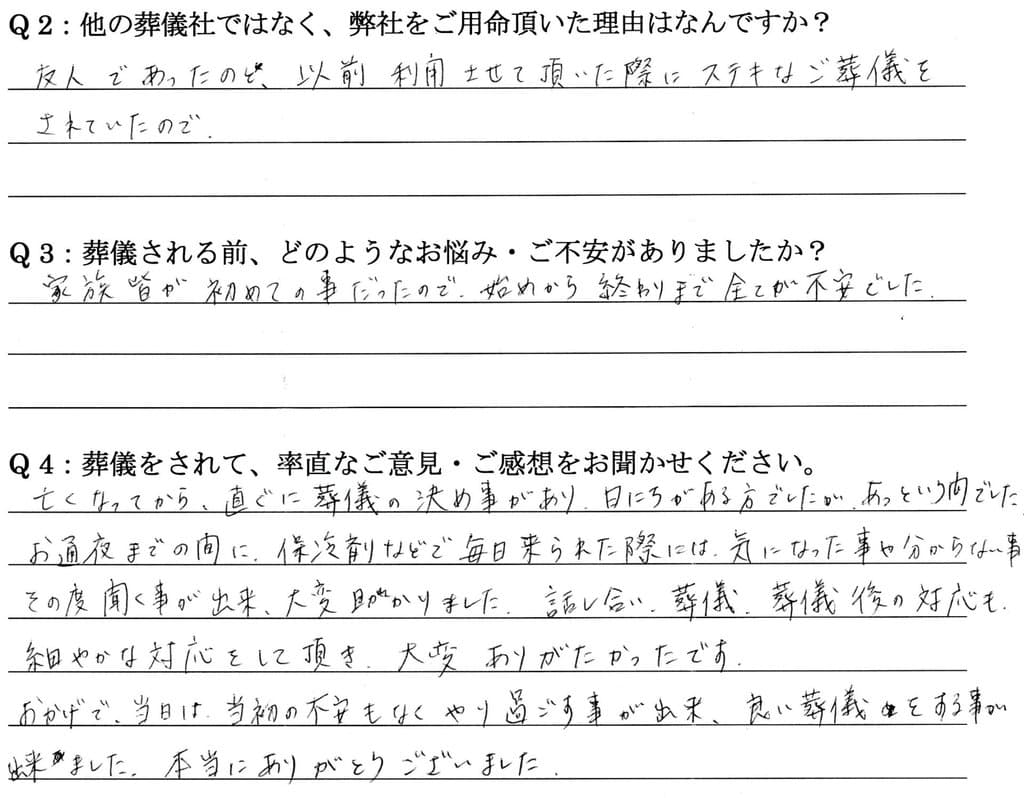 Q2：他の葬儀社ではなく、弊社をご用命頂いた理由はなんですか？
友人であったのと、以前 利用させて頂いた際に ステキなご葬儀を
されていたので。
Q3：葬儀される前、どのようなお悩み・ご不安がありましたか？
家族皆が 初めての事だったので、始めから 終わりまで 全てが不安でした。
Q4：葬儀をされて、率直なご意見・ご感想をお聞かせください。
亡くなってから、直ぐに葬儀の決め事があり、日にちがある方でしたが、あっという間でした。
お通夜までの間に、保冷剤などで毎日来られた際には、気になった事や分からない事
その度聞く事が出来、大変助かりました。話し合い、葬儀、葬儀後の対応も、
細やかな対応をして頂き、大変ありがたかったです。
おかげで、当日は、当初の不安もなくやり過ごす事が出来、良い葬儀をする事が
出来ました。本当にありがとうございました。